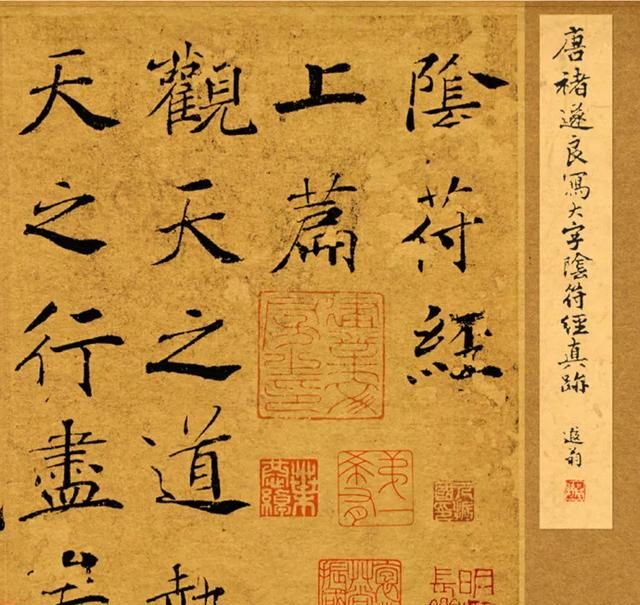 唐褚遂良寫大字陰符經真跡
遐菴
陰符經
上篇
觀天之道執
天之行盡矣